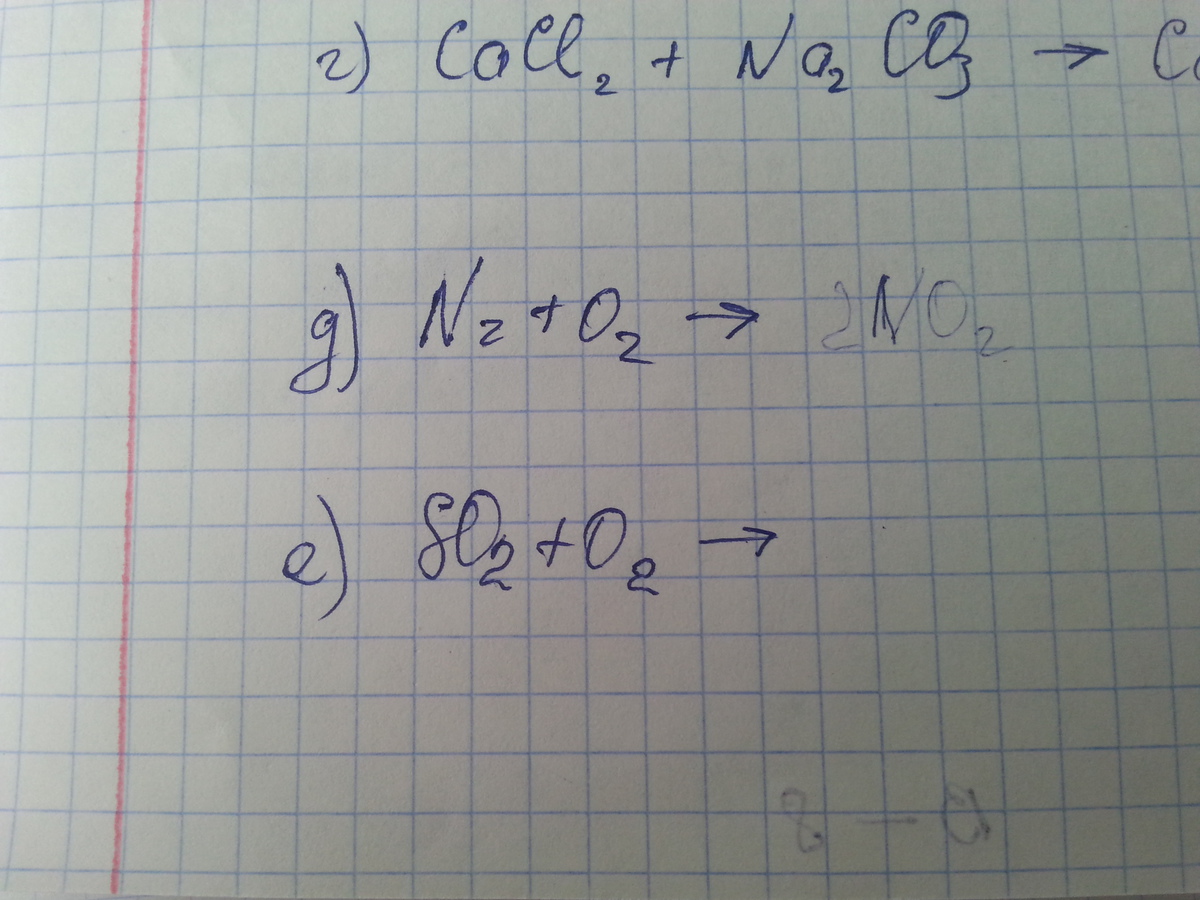 г) CaCl₂ + Na₂CO₃ → C
д) N₂ + O₂ → 2NO₂
е) SO₂ + O₂ →